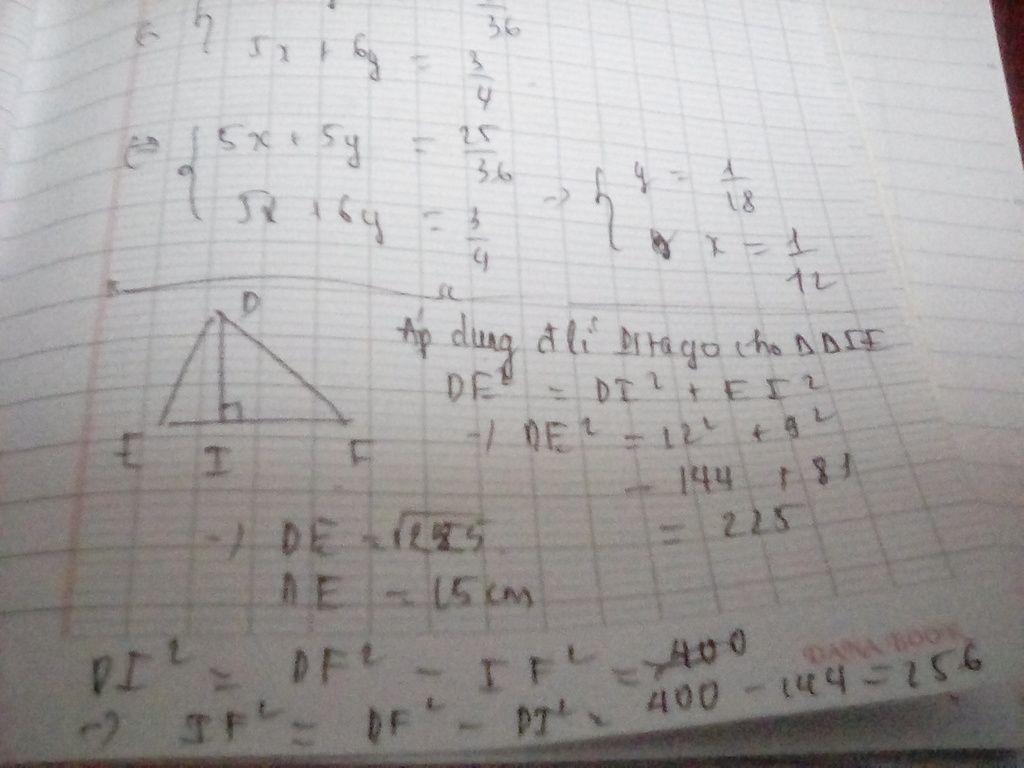 36
5x + 6y = 3/4
⇔ { 5x + 5y = 25/36
5x + 6y = 3/4
→ { y = 1/18
x = 1/12
D
E I F
Áp dụng đlí Pitago cho Δ DIE
DE² = DI² + EI²
→ DE² = 12² + 9²
= 144 + 81
= 225
→ DE = √225
DE = 15 cm
DI² = DF² - IF² = 400
→ IF² = DF² - DI² = 400 - 144 = 256
DANA BOOK